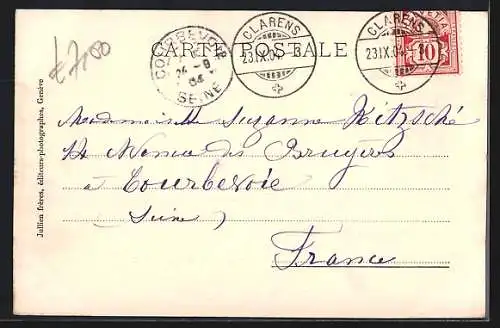 CARTE POSTALE
£7.50
COURBEVOIE
24-9
04
SEINE
CLARENS
23.IX.04-8
CLARENS
23.IX.04
HELVETIA
10
Mademoiselle Suzanne Nitzsché
14 Avenue des Bruyères
à Courbevoie
(Seine)
France
Jullien frères, éditeurs-photographes, Genève